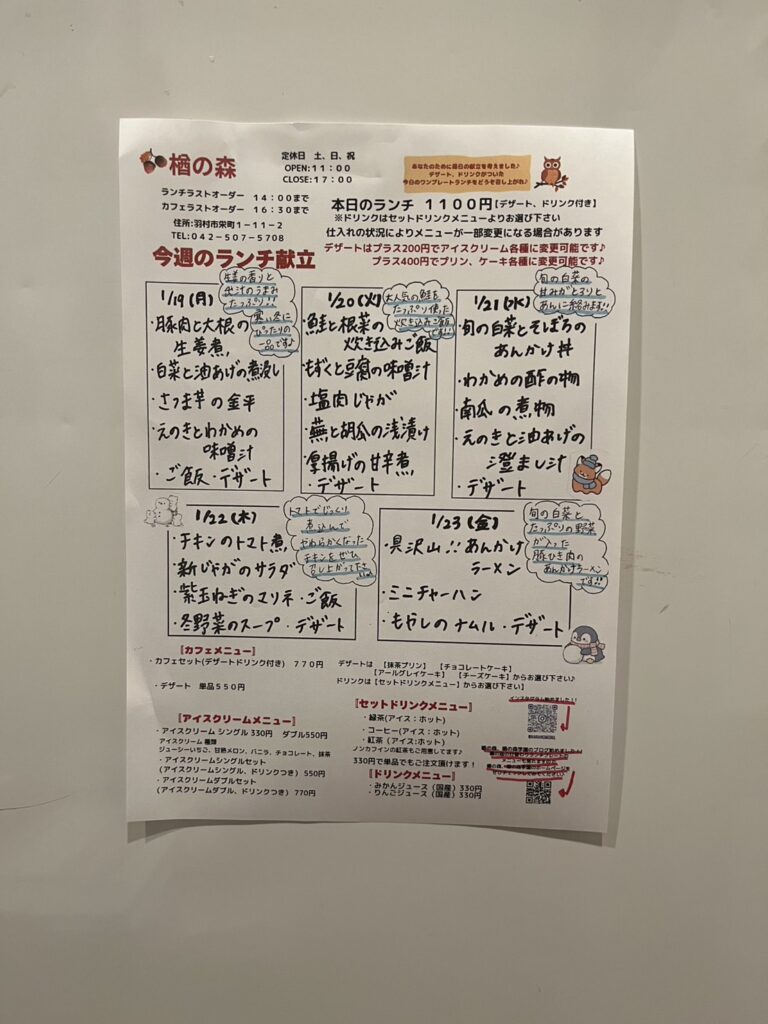 楢の森
定休日　土、日、祝
OPEN:11:00
CLOSE:17:00
あなたのために毎日の献立を考えました♪
デザート、ドリンクがついた
今日のワンプレートランチをどうぞ召し上がれ♪
ランチラストオーダー　14:00まで
カフェラストオーダー　16:30まで
住所:羽村市栄町1-11-2
TEL:042-507-5708
本日のランチ　1100円【デザート、ドリンク付き】
※ドリンクはセットドリンクメニューよりお選び下さい
仕入れの状況によりメニューが一部変更になる場合があります
デザートはプラス200円でアイスクリーム各種に変更可能です♪
プラス400円でプリン、ケーキ各種に変更可能です♪
今週のランチ献立
1/19(月)
生姜の香りと
出汁のうまみ
たっぷり!!
寒い冬に
ぴったりの
一品です♪
・豚肉と大根の
生姜煮
・白菜と油あげの煮浸し
・さつま芋の金平
・えのきとわかめの
味噌汁
・ご飯・デザート
1/20(火)
大人気の鮭を
たっぷり使った
炊き込みご飯
です!!
・鮭と根菜の
炊き込みご飯
・もずくと豆腐の味噌汁
・塩肉じゃが
・蕪と胡瓜の浅漬け
・厚揚げの甘辛煮
・デザート
1/21(水)
旬の白菜の
甘みがとろりと
あんに絡みます!!
・旬の白菜とそぼろの
あんかけ丼
・わかめの酢の物
・南瓜の煮物
・えのきと油あげの
澄まし汁
・デザート
1/22(木)
トマトでじっくり
煮込んで
やわらかくなった
チキンをぜひ
召し上がって下さい
・チキンのトマト煮
・新じゃがのサラダ
・紫玉ねぎのマリネ・ご飯
・冬野菜のスープ・デザート
1/23(金)
旬の白菜と
たっぷりの野菜
が入った
豚ひき肉の
あんかけラーメン
です!!
・具沢山!!あんかけ
ラーメン
・ミニチャーハン
・もやしのナムル・デザート
『カフェメニュー』
・カフェセット(デザートドリンク付き)　770円
デザートは　【抹茶プリン】　【チョコレートケーキ】
【アールグレイケーキ】　【チーズケーキ】からお選び下さい♪
ドリンクは【セットドリンクメニュー】からお選び下さい】
・デザート　単品550円
『アイスクリームメニュー』
・アイスクリーム シングル 330円　ダブル550円
アイスクリーム 種類
ジューシーいちご、甘熟メロン、バニラ、チョコレート、抹茶
・アイスクリームシングルセット
(アイスクリームシングル、ドリンクつき) 550円
・アイスクリームダブルセット
(アイスクリームダブル、ドリンクつき) 770円
『セットドリンクメニュー』
・緑茶(アイス:ホット)
・コーヒー(アイス:ホット)
・紅茶 (アイス:ホット)
ノンカフェインの紅茶もご用意してます♪
330円で単品でもご注文頂けます!
『ドリンクメニュー』
・みかんジュース (国産) 330円
・りんごジュース (国産) 330円
インスタグラム始めました!!